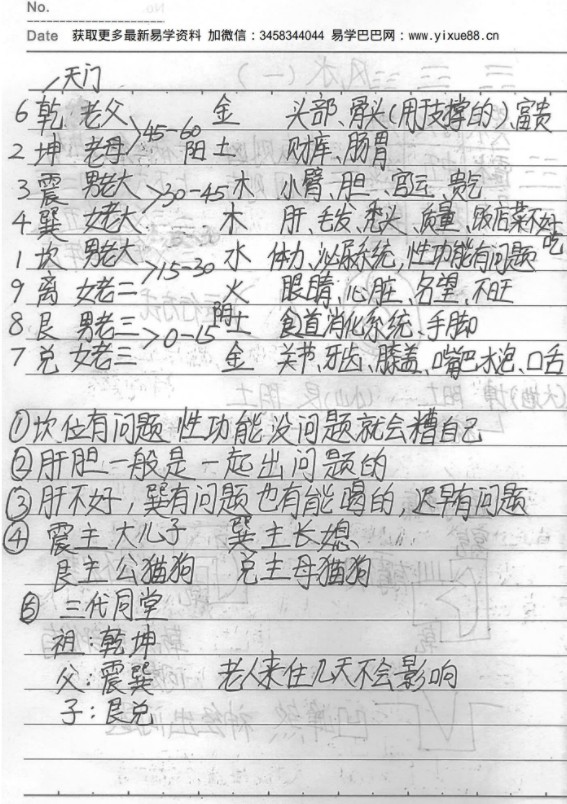 No.
Date 获取更多最新易学资料 加微信：3458344044 易学巴巴网：www.yixue88.cn
天门
6 乾 老父 >45-60 金 头部、骨头(用于支撑的)、富贵
2 坤 老母 阳土 财库、肠胃
3 震 男老大 >30-45 木 小臂、胆、官运、贵气
4 巽 女老大 木 肝、毛发、秃头、质量、饭店菜不好吃
1 坎 男老大 >15-30 水 体力、泌尿系统、性功能有问题
9 离 女老二 火 眼睛、心脏、名望、不旺
8 艮 男老三 >0-15 阴土 食道消化系统、手脚
7 兑 女老三 金 关节、牙齿、膝盖、嘴巴水泡、口舌
①坎位有问题 性功能没问题就会糟自己
②肝胆一般是一起出问题的
③肝不好，巽有问题也有能喝的，迟早有问题
④ 震主大儿子 巽主长媳
艮主公猫狗 兑主母猫狗
⑤ 三代同堂
祖 乾坤
父：震巽 老人来住几天不会影响
子：艮兑